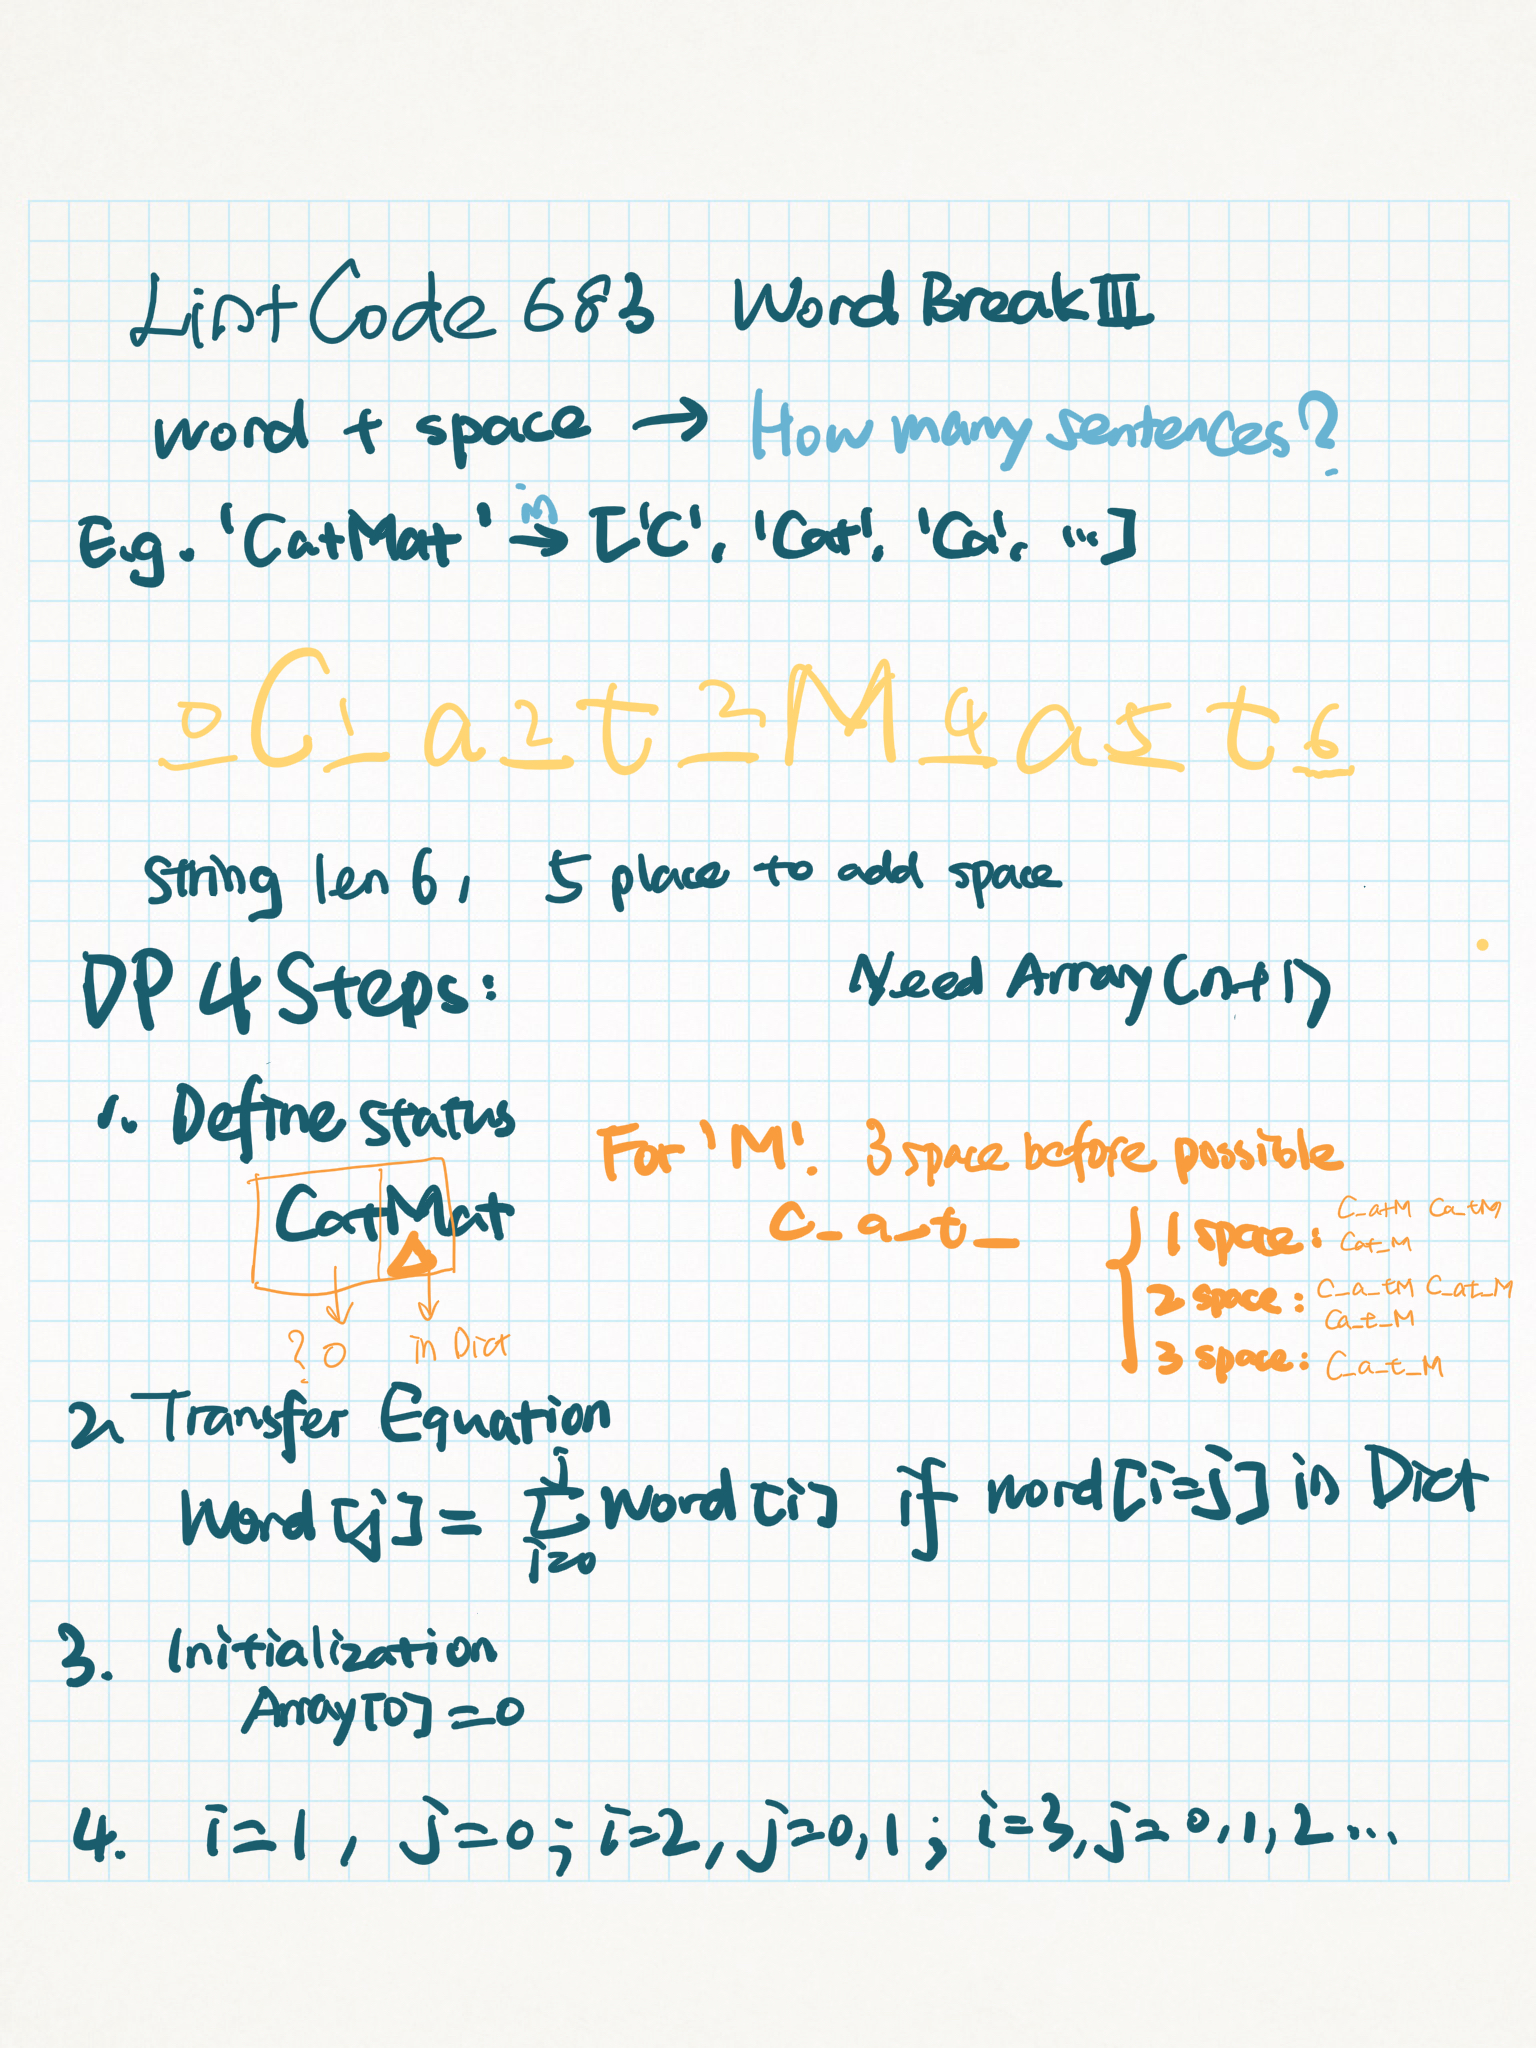 LintCode 683 Word Break III
word + space → How many sentences?
E.g. 'CatMat' in → ['C', 'Cat', 'Ca', ...]
0 C 1 a 2 t 2 M 4 a 5 t 6
string len 6, 5 place to add space
DP 4 Steps: Need Array (n+1)
1. Define status
For 'M'. 3 space before possible
CatMat
C_a_t_
1 space: C_atM Ca_tM
Cat_M
2 space: C_a_tM C_at_M
Ca_t_M
3 space: C_a_t_M
? 0 in Dict
2. Transfer Equation
Word[j] = ∑ j i=0 Word[i] if word[i=j] in Dict
3. Initialization
Array[0]=0
4. i=1, j=0; i=2, j=0,1; i=3, j=0,1,2...